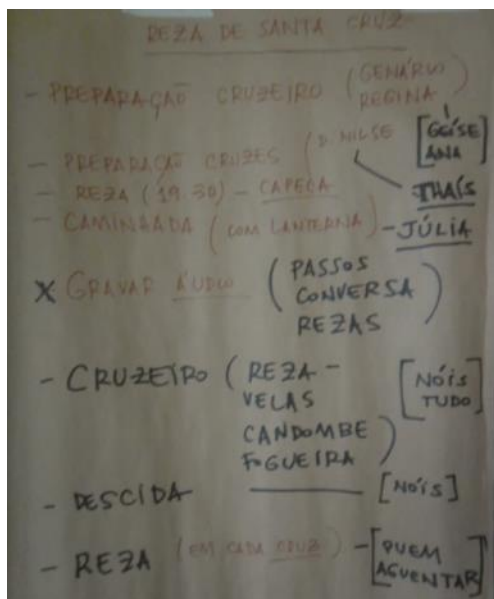 REZA DE SANTA CRUZ
- PREPARAÇÃO CRUZEIRO (GENÁRIO REGINA)
[GEÍSE ANA]
- PREPARAÇÃO CRUZES (D. NILSE
- REZA (19.30) - CAPELA
THAÍS
- CAMINHADA (COM LANTERNA) - JÚLIA
X GRAVAR ÁUDIO (PASSOS
CONVERSA
REZAS)
- CRUZEIRO (REZA - [NÓIS
VELAS TUDO]
CANDOMBE
FOGUEIRA)
- DESCIDA [NÓIS]
- REZA (EM CADA CRUZ) - [QUEM
AGUENTAR]